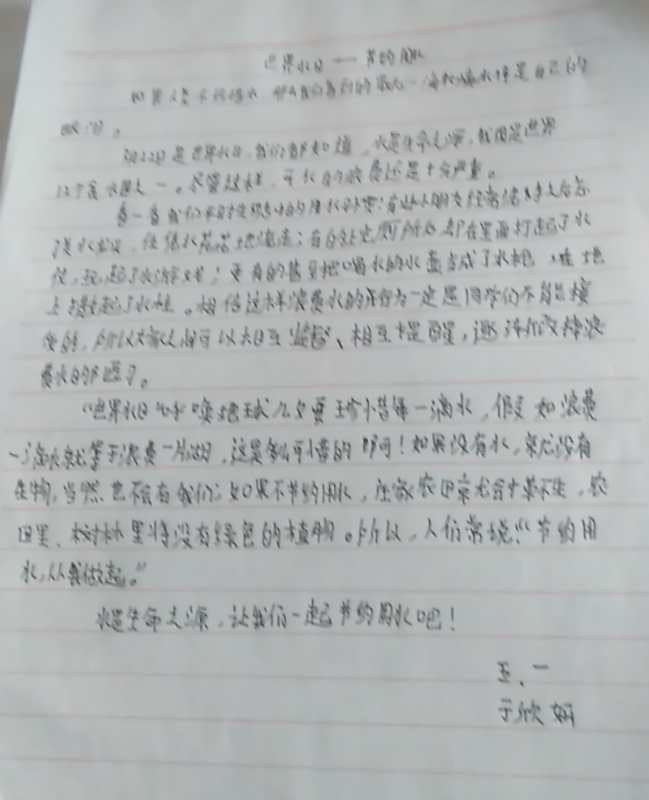 世界水日——节约用水
如果人类不珍惜水，那我们看到的最后一滴水将是自己的
眼泪。
3月22日是世界水日，我们都知道，水是生命之源，我国是世界
12个贫水国之一。尽管这样，可水的浪费还是十分严重。
看一看我们平时生活中的用水习惯：有些小朋友经常
，使得水花花地流走；有的 厕所后却在里面打起了水
仗，玩起了水游戏；更有的甚至把喝水的水壶当成了水枪，在地
上 起了水仗。相信这样浪费水的行为一定是同学们不能接
受的，所以大家之间可以相互监督、相互提醒，逐渐改掉浪
费水的陋习。
“世界水日”呼唤地球儿女要珍惜每一滴水，假如浪费
一滴水就等于浪费一片湖，这是多么可惜的啊！如果没有水，就没有
生物，当然也不会有我们；如果不节约用水，庄家农田就会寸草不生，农
田里、树林里将没有绿色的植物。所以，人们常说：“节约用
水，从我做起。”
水是生命之源，让我们一起节约用水吧！
五、一
于欣妍